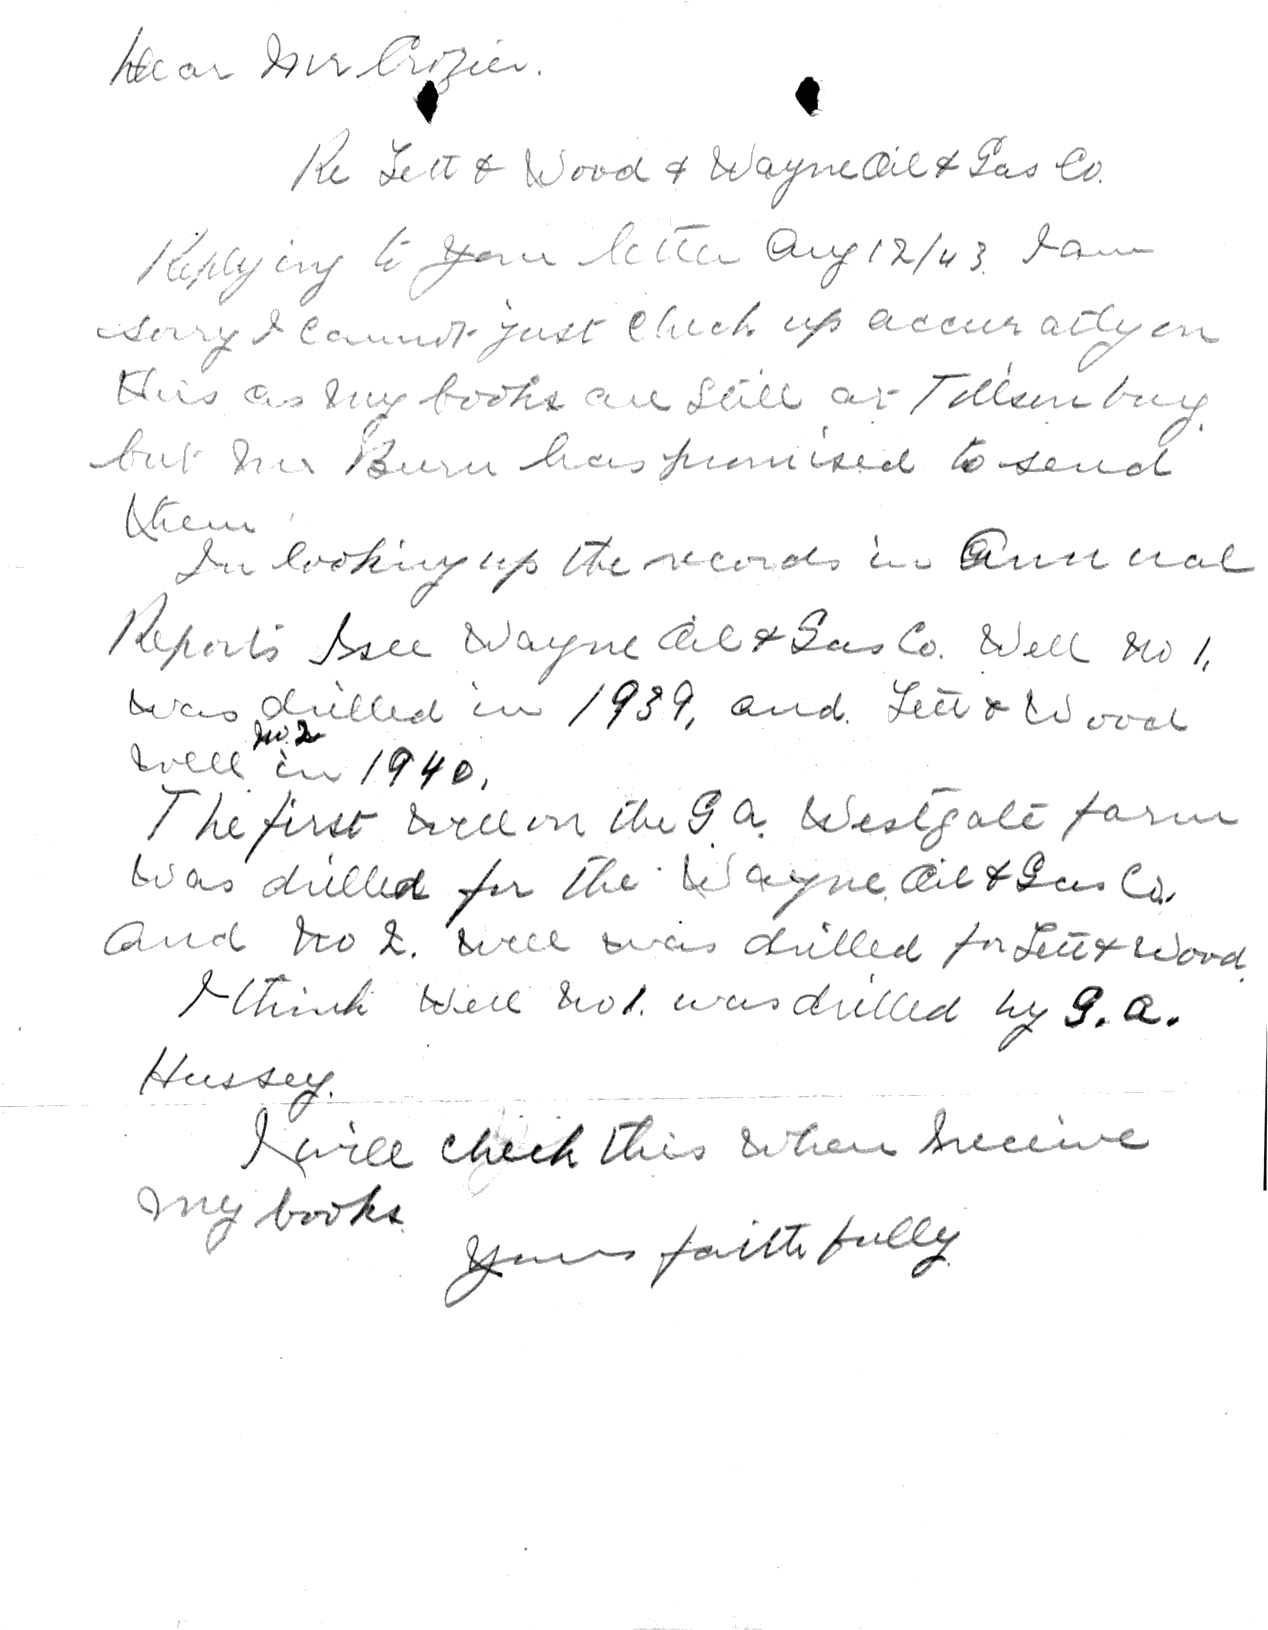 Dear Mr Crozier.
Re Lett & Wood & Wayne Oil & Gas Co.
Replying to your letter Aug 12/43. I am
sorry I cannot just check up accuratly on
this as my books are still at Tillsonburg.
but Mr Burn has promised to send
them.
In looking up the records in Annual
Reports I see Wayne Oil & Gas Co. Well No 1.
was drilled in 1939, and. Lett & Wood
No. 2
well in 1940.
The first well on the G. A. Westgate farm
was drilled for the Wayne Oil & Gas Co.
and No 2. well was drilled for Lett & Wood.
I think Well No 1. was drilled by G. A.
Hussey.
I will check this when I receive
my books.
Yours faithfully